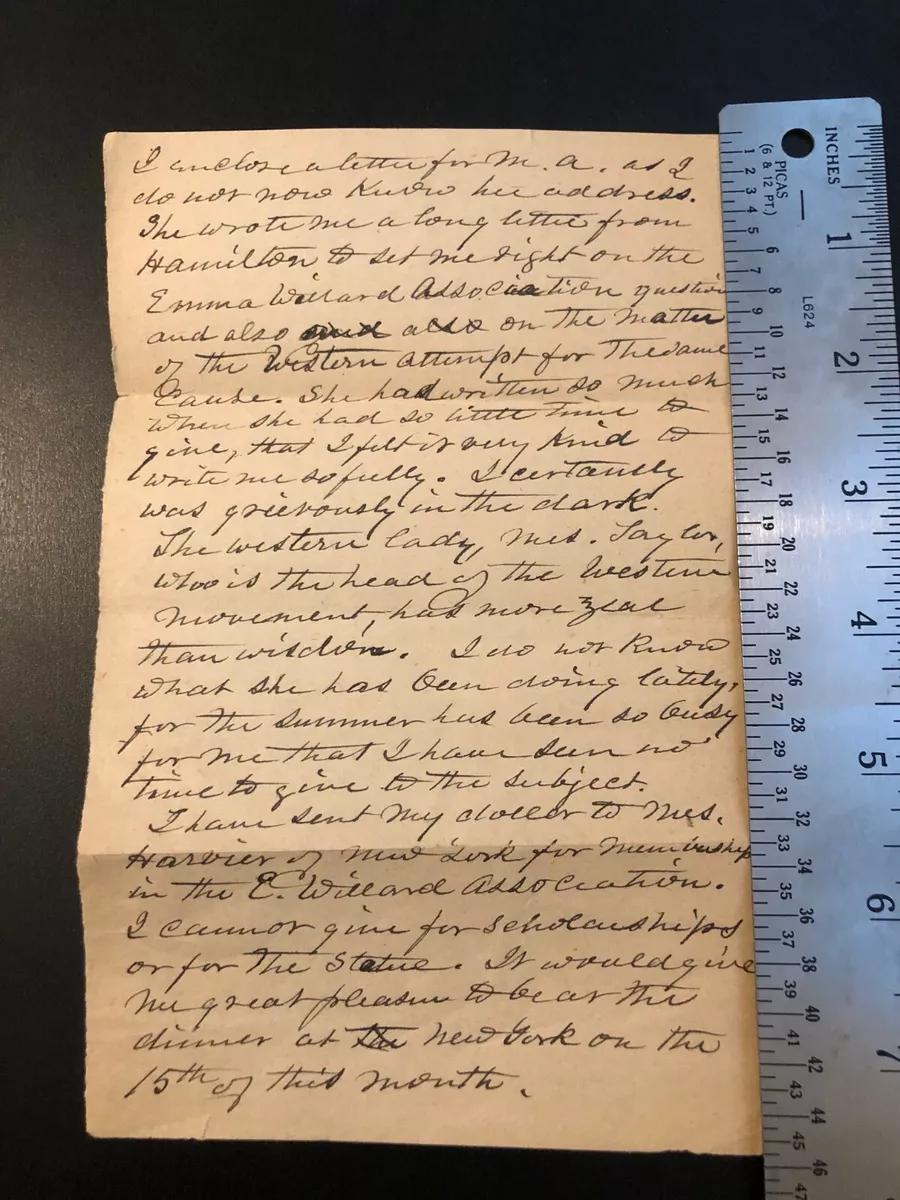 I enclose a letter for M. A. as I
do not now know her address.
She wrote me a long letter from
Hamilton to set me right on the
Emma Willard Association question
and also and also on the matter
of the Western attempt for the same
Cause. She had written so much
when she had so little time to
give, that I felt it very kind to
write me so fully. I certainly
was grievously in the dark.
The western lady, Mrs. Taylor,
who is the head of the Western
movement, has more zeal
than wisdom. I do not know
what she has been doing lately,
for the summer has been so busy
for me that I have seen no
time to give to the subject.
I have sent my dollar to Mrs.
Harvier of New York for membership
in the E. Willard Association.
I cannot give for scholarships
or for the Statue. It would give
me great pleasure to be at the
dinner at the New York on the
15th of this month.
INCHES
PICAS
(6 & 12 PT.)
L624
1
2
3
4
5
6
7
1
2
3
4
5
6
7
8
9
10
11
12
13
14
15
16
17
18
19
20
21
22
23
24
25
26
27
28
29
30
31
32
33
34
35
36
37
38
39
40
41
42
43
44
45
46
47